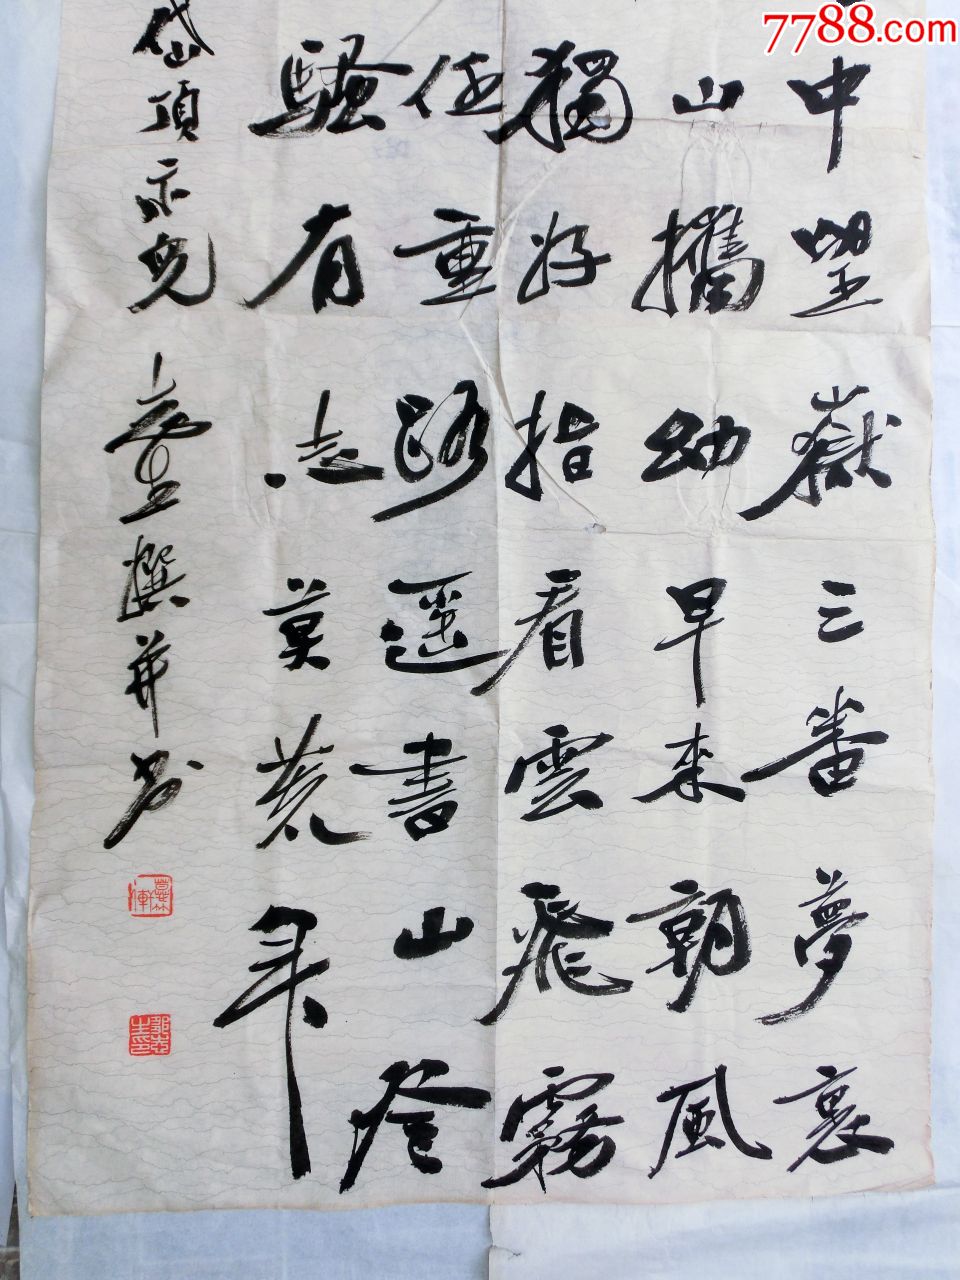 7788.com
中望嶽三番夢裏
山攜幼早來朝風
獨好指看雲飛霧
任重路遥書山登
騷有志莫荒年
岱頂示兒
撰并书